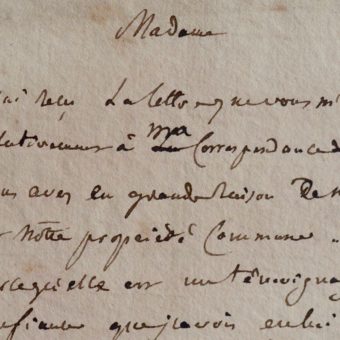 Madame
ai reçu La lettre que vous m'
lativement à ma Correspondance d
us avez eu grande raison De
r Notre propriété Commune
parcequ'elle est un témoignag
nfiance que j'avois en lui